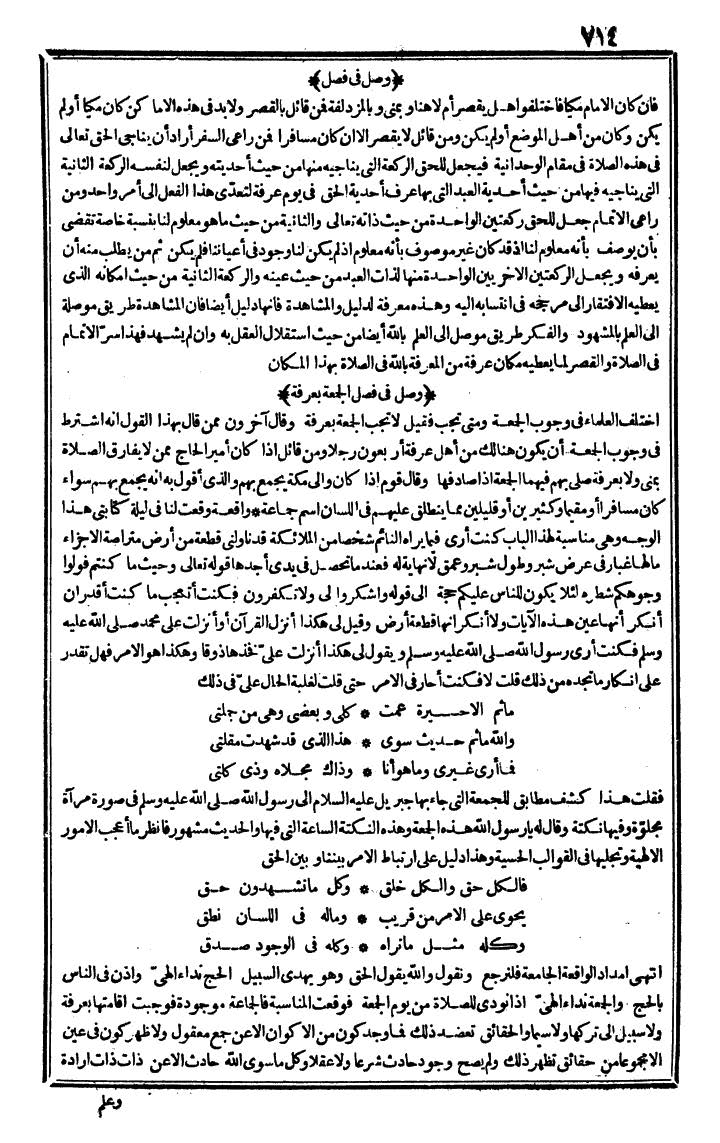 ٧١٤
﴿وصل في فصل﴾
فان كان الامام مكيا فاختلفوا هل يقصر أم لا هنا و بمنى و بالمزدلفة فمن قائل بالقصر ولا بد فى هذه الاماكن كان مكيا أولم
يكن وكان من أهل الموضع أولم يكن ومن قائل لا يقصر الا ان كان مسافرا فمن راعى السفر أراد أن يناجى الحق تعالى
فى هذه الصلاة فى مقام الوحدانية فيجعل للحق الركعة التى يناجيه منها من حيث أحديته ويجعل لنفسه الركعة الثانية
التى يناجيه فيها من حيث أحدية العبد التى بها عرف أحدية الحق فى يوم عرفة لتعدّى هذا الفعل الى أمر واحد ومن
راعى الاتمام جعل للحق ركعتين الواحدة من حيث ذاته تعالى والثانية من حيث ما هو معلوم لنا بنسبة خاصة تقضى
بأن يوصف بأنه معلوم لنا اذ قد كان غير موصوف بأنه معلوم اذ لم يكن لنا وجود فى أعياننا فلم يكن ثم من يطلب منه أن
يعرفه ويجعل الركعتين الاخريين الواحدة منها لذات العبد من حيث عينه والركعة الثانية من حيث امكانه الذى
يعطيه الافتقار الى مرجحه فى انتسابه اليه وهذه معرفة للدليل والمشاهدة فانها دليل أيضا فان المشاهدة طريق موصلة
الى العلم بالمشهود والفكر طريق موصل الى العلم بالله أيضا من حيث استقلال العقل به وان لم يشهد فهذا سرّ الاتمام
فى الصلاة والقصر لما يعطيه مكان عرفة من المعرفة بالله فى الصلاة بهذا المكان
﴿وصل فى فصل الجمعة بعرفة﴾
اختلف العلماء فى وجوب الجمعة ومتى تجب فقيل لا تجب الجمعة بعرفة وقال آخرون ممن قال بهذا القول انه اشترط
فى وجوب الجمعة أن يكون هنالك من أهل عرفة أربعون رجلا ومن قائل اذا كان أمير الحاج ممن لا يفارق الصلاة
بمنى ولا بعرفة صلى بهم فيهما الجمعة اذا صادفها وقال قوم اذا كان والى مكة يجمع بهم والذى أقول به انه يجمع بهم سواء
كان مسافرا أو مقيما وكثيرين أو قليلين مما ينطلق عليهم فى اللسان اسم جماعة * واقعة وقعت لنا فى ليلة كتابتى هذا
الوجه وهى مناسبة لهذا الباب كنت أرى فيما يراه النائم شخصا من الملائكة قد ناولنى قطعة من أرض متراصة الاجزاء
ما لها غبار فى عرض شبر وطول شبر وعمق لا نهاية له فعند ما تحصل فى يدى أجدها قوله تعالى وحيث ما كنتم فولوا
وجوهكم شطره لئلا يكون للناس عليكم حجة الى قوله واشكروا لى ولا تكفرون فكنت أتعجب ما كنت أقدر ان
أنكر أنها عين هذه الآيات ولا أنكر انها قطعة أرض وقيل لى هكذا أنزل القرآن أو أنزلت على محمد صلى الله عليه
وسلم فكنت أرى رسول الله صلى الله عليه وسلم ويقول لى هكذا أنزلت علىّ فخذها ذوقا وهكذا هو الامر فهل تقدر
على انكار ما تجده من ذلك قلت لا فكنت أحار فى الامر حتى قلت لغلبة الحال علىّ فى ذلك
ماثم الا حيرة عمت * كلى و بعضى وهى من جلتى
والله ماثم حديث سوى * هذا الذى قد شهدت مقلتى
فما أرى غيرى وما هو أنا * وذاك مجلاه وذى كلتى
فقلت هذا كشف مطابق للجمعة التى جاء بها جبريل عليه السلام الى رسول الله صلى الله عليه وسلم فى صورة مرآة
مجلوّة وفيها نكتة وقال له يا رسول الله هذه الجمعة وهذه النكتة الساعة التى فيها والحديث مشهور فانظر ما أعجب الامور
الالهية وتجليها فى القوالب الحسية وهذا دليل على ارتباط الامر بيننا و بين الحق
فالكل حق والكل خلق * وكل ماتشهدون حق
يحوى على الامر من قريب * وماله فى اللسان نطق
وكله مثل ماتراه * وكله فى الوجود صدق
انتهى امداد الواقعة الجامعة فلنرجع ونقول والله يقول الحق وهو يهدى السبيل الحج نداء الهىّ واذن فى الناس
بالحج والجمعة نداء الهىّ اذا نودى للصلاة من يوم الجمعة فوقعت المناسبة فالجماعة موجودة فوجبت اقامتها بعرفة
ولا سبيل الى تركها ولا سيما والحقائق تعضد ذلك فما وجد كون من الاكوان الا عن جمع معقول ولا ظهر كون فى عين
الا مجموعا من حقائق تظهر ذلك ولم يصح وجود حادث شرعا ولا عقلا وكل ما سوى الله حادث الا عن ذات ذات ارادة
وعلم